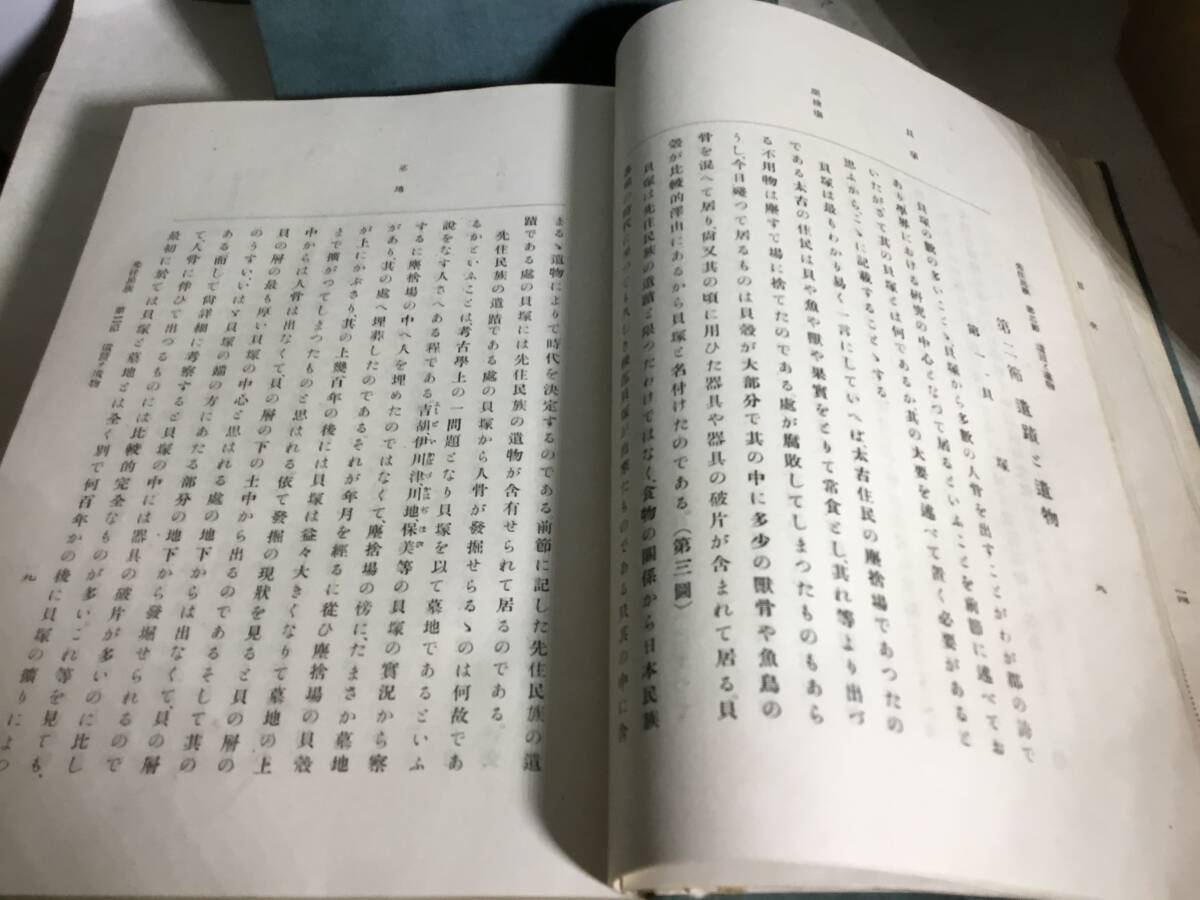 第二節 遺蹟と遺物
第一 貝塚
貝塚
塵捨場
貝塚の數の多いことゝ貝塚から多數の人骨を出すことがわが郡の誇で
あり學界における研究の中心となつて居るといふことを前節に述べてお
いたがさて其の貝塚とは何であるか其の大要を述べて置く必要があると
思ふからこゝに記載することゝする。
貝塚は最もわかり易く一言にしていへば太古住民の塵捨場であつたの
である太古の住民は貝や魚や獸や果實をとりて常食とし、其れ等より出づ
る不用物は塵すて場に捨てたのである。處が腐敗してしまつたものもあら
うし、今日殘つて居るものは貝殼が大部分で其の中に多少の獸骨や魚鳥の
骨を混へて居り、尙又其の頃に用ひた器具や器具の破片が含まれて居る、貝
殼が比較的澤山にあるから貝塚と名付けたのである。(第三圖)
貝塚は先住民族の遺蹟と限つたわけではなく、食物の關係から日本民族
八
まるゝ遺物によりて時代を決定するのである前節に記した先住民族の遺
蹟である處の貝塚には先住民族の遺物が含有せられて居るのである。
墓地
先住民族の遺蹟である處の貝塚から人骨が發掘せらるゝのは何故であ
るかといふことは、考古學上の一問題となり貝塚を以て墓地であるといふ
說をなす人さへある程である。吉胡、伊川津、川地、保美等の貝塚の實況から察
するに塵捨場の中へ人を埋めたのではなくて、塵捨場の傍に、たまさか墓地
があり、其の處へ埋葬したのである。それが年月を經るに從ひ塵捨場の貝殼
が上にかぶさり、其の上幾百年の後には貝塚は益々大きくなりて墓地の上
まで擴がつてしまつたものと思はれる、依て發掘の現狀を見ると貝の層の
中からは人骨は出なくて貝の層の下の土中から出るのであるそして其の
貝の層の最も厚い貝塚の中心と思はれる處の地下からは出なくて、貝の層
のうすい、いはゞ貝塚の端の方にあたる部分の地下から發掘せられるので
ある而して尙詳細に考察すると貝塚の中には器具の破片が多いのに比し
て、人骨に伴ひて出つるものには比較的完全なものが多い、これ等を見ても、
最初に於ては貝塚と墓地とは全く別で何百年かの後に貝塚の擴りによつ
先住民族 第二節 遺蹟ト遺物
九